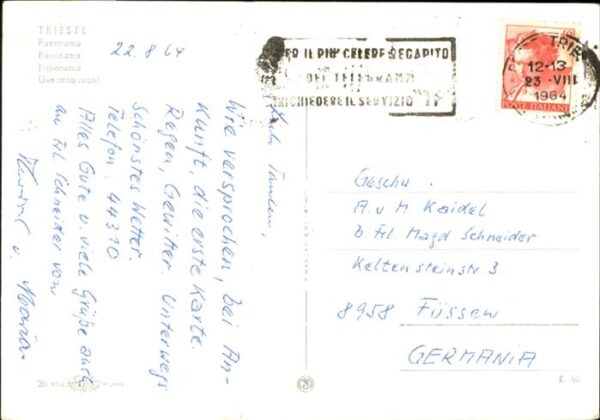 TRIESTE
Panorama
Panorama
Panorama
Gesamtansicht
22.8.64
PER IL PIU' CELERE RECAPITO
DEI TELEGRAMMI
RICHIEDERE IL SERVIZIO "TF"
TRIE
12-13
23 VIII
1964
POSTE ITALIANE
Tanten,
Wie versprochen, bei An-
kunft, die erste Karte.
Regen, Gewitter. Unterwegs
Schönstes Wetter.
Telefon. 44310
Alles Gute u. viele Grüße auch
an Frl. Schneider von
u. Maria
Geschw.
A. u M Kaidel
b Frl. Magd. Schneider
Keltensteinstr 3
8958 Füssen
GERMANIA